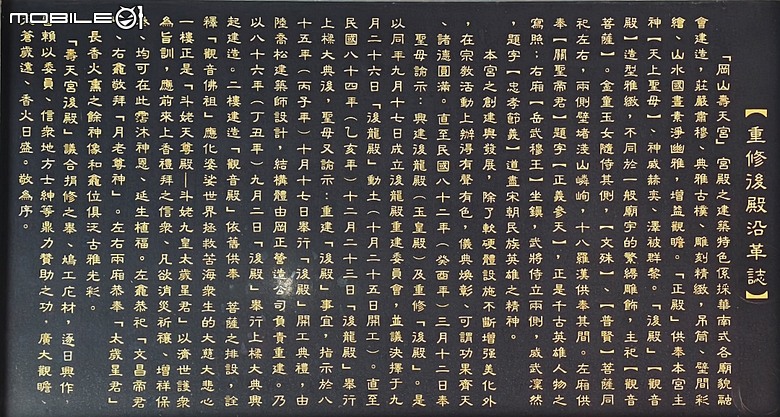 Mobile01
【重修後殿沿革誌】
「岡山壽天宮」宮殿之建築特色係採華南式各廟貌融
會建造，莊嚴肅穆、典雅古樸、雕刻精緻，吊筒、壁間彩
繪、山水國畫素淨幽雅，增益觀瞻。「正殿」供奉本宮主
神【天上聖母】、神威赫奕、澤被群黎。「後殿」【觀音
殿】造型雅緻，不同於一般廟宇的繁縟雕飾，主祀【觀音
菩薩】。金童玉女隨侍其側，【文殊】、【普賢】菩薩同
祀左右，兩側壁堵淺山嶙峋，十八羅漢供奉其間。左廂供
奉【關聖帝君】題字【正義參天】，正是千古英雄人物之
寫照；右廂【岳武穆王】坐鎮，武將侍立兩側，威武凜然
，題字【忠孝節義】道盡宋朝民族英雄之精神。
本宮之創建與發展，除了軟硬體設施不斷增強美化外
，在宗教活動上辦得有聲有色，儀典煥彰，可謂功果齊天
、諸德圓滿。直至民國八十二年（癸酉年）三月十二日奉
聖母諭示：興建後龍殿（玉皇殿）及重修「後殿」。是
以同年九月十七日成立後龍殿重建委員會，並議決擇于九
月二十六日「後龍殿」動土（十月二十五日開工）。直至
民國八十四年（乙亥年）十二月二十三日「後龍殿」舉行
上樑大典後，聖母又諭示：重建「後殿」事宜，指示於八
十五年（丙子年）十月十七日舉行「後殿」開工典禮，由
陸喬松建築師設計，結構體由岡正營造公司負責重建。乃
以八十六年（丁丑年）九月二日「後殿」舉行上樑大典興
起建造。二樓建造「觀音殿」依舊供奉　菩薩之排設，詮
釋「觀音佛祖」應化娑婆世界拯救苦海眾生的大慈大悲心
一樓正是「斗姥天尊殿─斗姥九皇太歲星君」以濟世護眾
為旨訓，應前來上香禮拜之信眾、凡欲消災祈禳、增祥保
，均可在此霑沐神恩、延生植福。左龕恭祀「文昌帝君
、右龕敬拜「月老尊神」。左右兩廂恭奉「太歲星君」
長香火薰之餘神像和龕位俱泛古雅光彩。
「壽天宮後殿」議合捐修之舉、鳩工庀材，逐日興作，
賴以委員、信眾地方士紳等鼎力贊助之功，廣大觀瞻
蒼歲遠　香火日盛。敬為序。